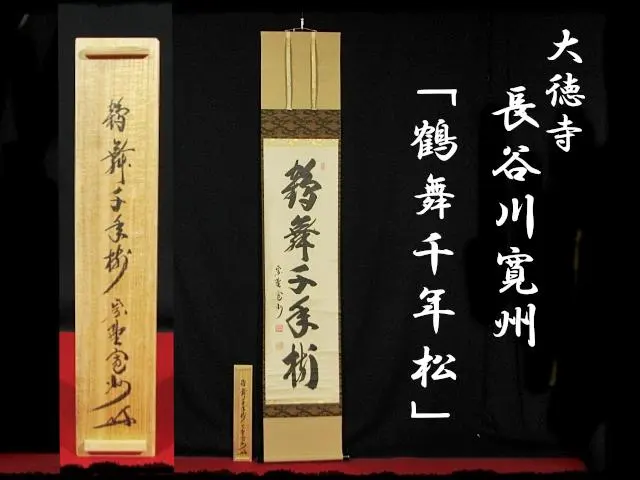 大徳寺
長谷川寛州
「鶴舞千年松」
鶴舞千年樹
紫野寛州
鶴舞千年樹 紫野寛州